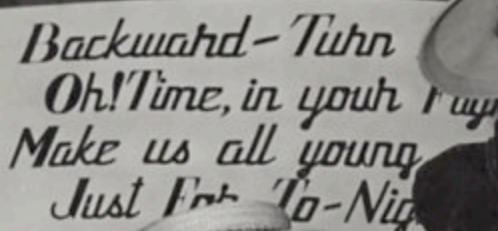 Backward-Turn
Oh! Time, in your
Make us all young
Just For To-Nig